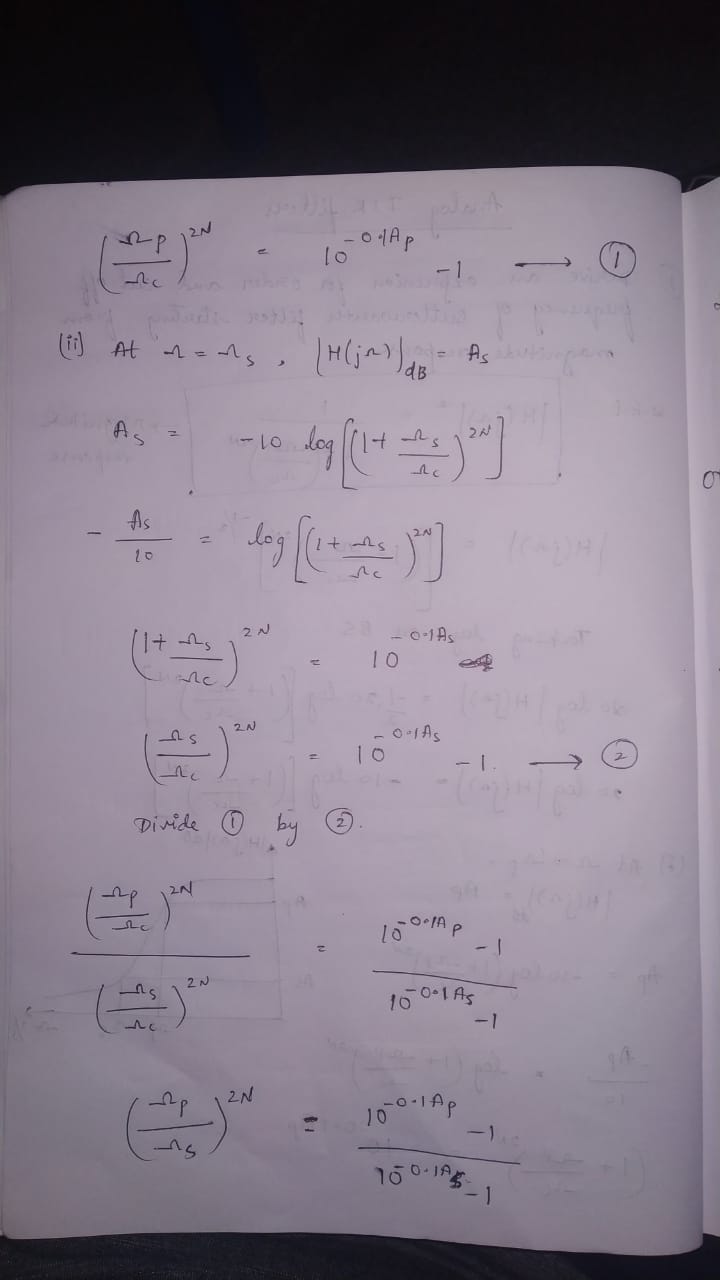 (Ωp/Ωc)^2N = 10^-0.1Ap -1 → ①
(ii) At Ω = Ωs, |H(jΩ)|dB = As
As = -10 log[(1+ Ωs/Ωc)^2N]
- As/10 = log[(1+ Ωs/Ωc)^2N]
(1+ Ωs/Ωc)^2N = 10^-0.1As
(Ωs/Ωc)^2N = 10^-0.1As -1. → ②
Divide ① by ②.
(Ωp/Ωc)^2N / (Ωs/Ωc)^2N = 10^-0.1Ap -1 / 10^-0.1As -1
(Ωp/Ωs)^2N = 10^-0.1Ap -1 / 10^-0.1As -1